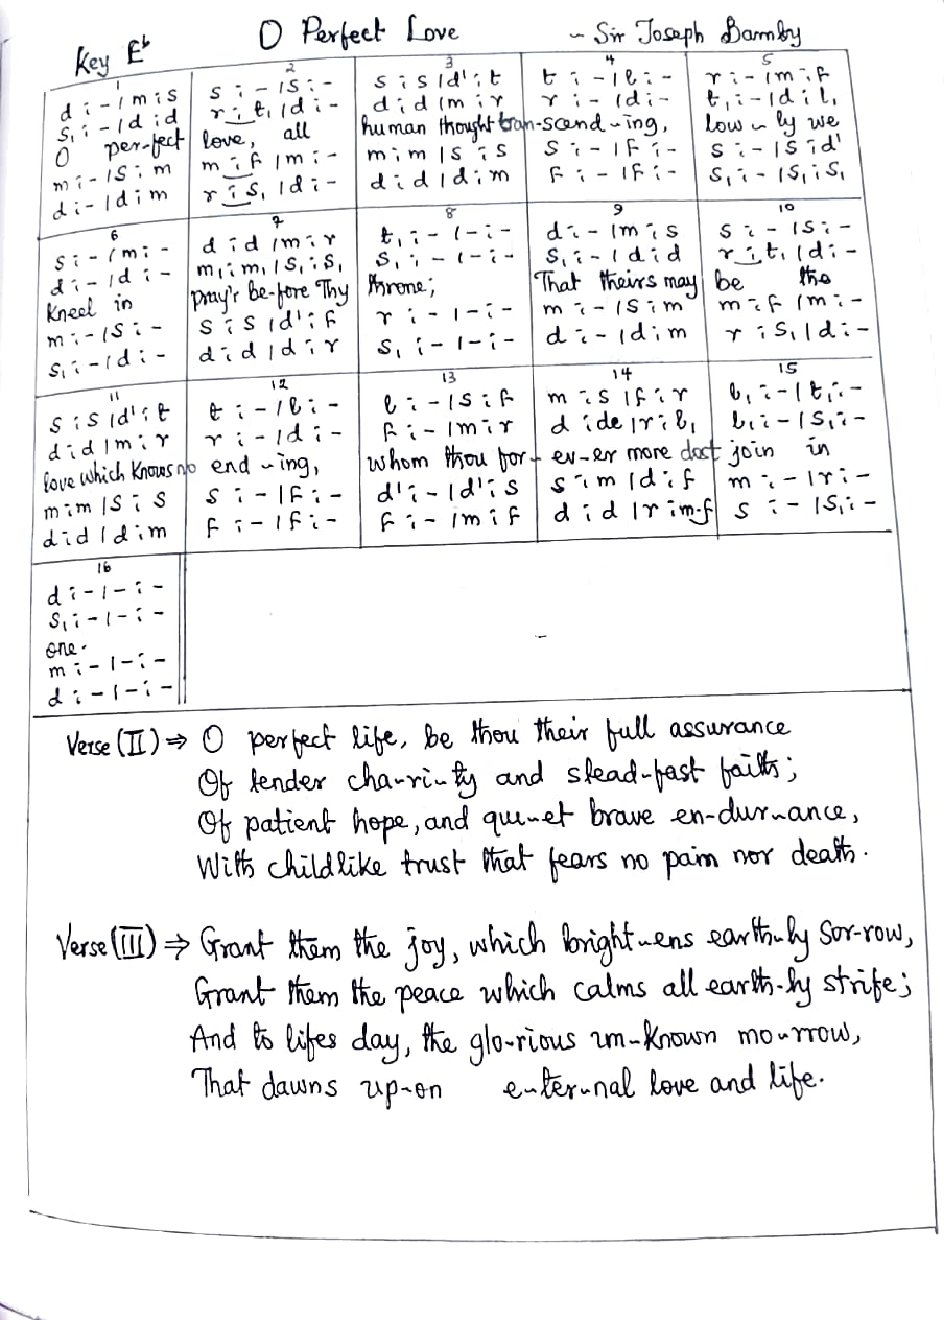 Key E♭
O Perfect Love
- Sir Joseph Barnby
1
d : - | m : s
s₁ : - | d : d
O per-fect
m : - | s : m
d : - | d : m
2
s : - | s : -
r : t₁ | d : -
love, all
m : f | m : -
r : s₁ | d : -
3
s : s | d' : t
d : d | m : r
human thought tran-
m : m | s : s
d : d | d : m
4
t : - | l : -
r : - | d : -
scend-ing,
s : - | f : -
f : - | f : -
5
r : - | m : f
t₁ : - | d : l₁
low-ly we
s : - | s : d'
s₁ : - | s₁ : s₁
6
s : - | m : -
d : - | d : -
kneel in
m : - | s : -
s₁ : - | d : -
7
d : d | m : r
m₁ : m₁ | s₁ : s₁
pray'r be-fore Thy
s : s | d' : f
d : d | d : r
8
t₁ : - | - : -
s₁ : - | - : -
throne;
r : - | - : -
s₁ : - | - : -
9
d : - | m : s
s₁ : - | d : d
That theirs may
m : - | s : m
d : - | d : m
10
s : - | s : -
r : t₁ | d : -
be the
m : f | m : -
r : s₁ | d : -
11
s : s | d' : t
d : d | m : r
love which knows no
m : m | s : s
d : d | d : m
12
t : - | l : -
r : - | d : -
end-ing,
s : - | f : -
f : - | f : -
13
l : - | s : f
f : - | m : r
whom thou for-
d' : - | d' : s
f : - | m : f
14
m : s | f : r
d : de | r : l₁
ev-er more dost
s : m | d : f
d : d | r : m.f
15
l₁ : - | t₁ : -
l₁ : - | s₁ : -
join in
m : - | r : -
s : - | s₁ : -
16
d : - | - : -
s₁ : - | - : -
one.
m : - | - : -
d : - | - : -
Verse (II) ⇒ O perfect life, be thou their full assurance
Of tender cha-ri-ty and stead-fast faith;
Of patient hope, and qui-et brave en-dur-ance,
With childlike trust that fears no pain nor death.
Verse (III) ⇒ Grant them the joy, which bright-ens earth-ly sor-row,
Grant them the peace which calms all earth-ly strife;
And to lifes day, the glo-rious un-known mo-rrow,
That dawns up-on e-ter-nal love and life.